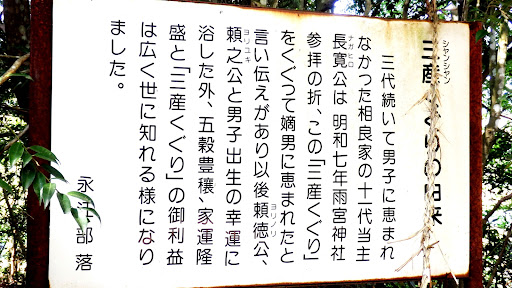 三産くぐりの由来
シャンシャン
三代続いて男子に恵まれ
なかった相良家の十代当主
長寛公は明和七年雨宮神社
ナガヒロ
参拝の折、この「三産くぐり」
をくぐって嫡男に恵まれたと
言い伝えがあり以後頼徳公、
ヨリノリ
頼之公と男子出生の幸運に
ヨリユキ
浴した外、五穀豊穣、家運隆
盛と「三産くぐり」の御利益
は広く世に知れる様になり
ました。
部落